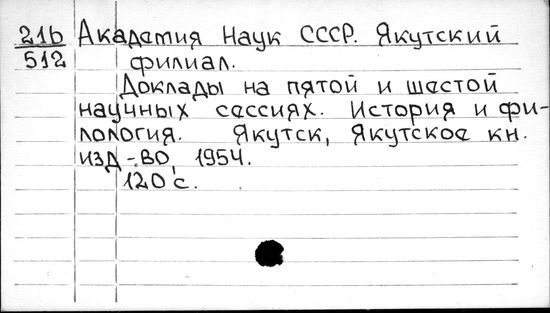 21b Академия Наук СССР. Якутский
512 филиал.
Доклады на пятой и шестой
научных сессиях. История и фи-
лология. Якутск, Якутское кн.
изд-во, 1954.
120 с.